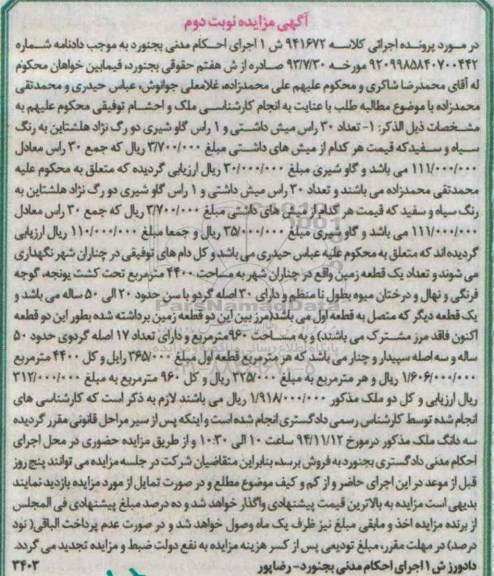 آگهی مزایده نوبت دوم
در مورد پرونده اجرائی کلاسه ۹۴۱۶۷۲ ش ۱ اجرای احکام مدنی بجنورد به موجب دادنامه شماره
۹۲۰۹۹۸۵۸۴۰۷۰۰۴۴۲ مورخه ۹۳/۷/۳۰ صادره از ش هفتم حقوقی بجنورد، فیمابین خواهان محکوم
له آقای محمدرضا شاکری و محکوم علیهم علی محمدزاده، غلامعلی جوانوش، عباس حیدری و محمدتقی
محمدزاده با موضوع مطالبه طلب با عنایت به انجام کارشناسی ملک و احشام توقیفی محکوم علیهم به
مشخصات ذیل الذکر: ۱- تعداد ۳۰ راس میش داشتی و ۱ راس گاو شیری دو رگ نژاد هلشتاین به رنگ
سیاه و سفیدکه قیمت هر کدام از میش های داشتی مبلغ ۳/۷۰۰/۰۰۰ ریال که جمع ۳۰ راس معادل
۱۱۱/۰۰۰/۰۰۰ می باشد و گاو شیری مبلغ ۳۰/۰۰۰/۰۰۰ ریال ارزیابی گردیده که متعلق به محکوم علیه
محمدتقی محمدزاده می باشند و تعداد ۳۰ راس میش داشتی و ۱ راس گاو شیری دو رگ نژاد هلشتاین به
رنگ سیاه و سفید که قیمت هر کدام از میش های داشتی مبلغ ۳/۷۰۰/۰۰۰ ریال که جمع ۳۰ راس معادل
۱۱۱/۰۰۰/۰۰۰ می باشد و گاو شیری مبلغ ۳۵/۰۰۰/۰۰۰ ریال و جمعا مبلغ ۱۱۰/۰۰۰/۰۰۰ ریال ارزیابی
گردیده اند که متعلق به محکوم علیه عباس حیدری می باشد و کل دام های توقیفی در چناران شهر نگهداری
می شوند و تعداد یک قطعه زمین واقع در چناران شهر به مساحت ۴۴۰۰ مترمربع تحت کشت یونجه، گوجه
فرنگی و نهال و درختان میوه بطول نا منظم و دارای ۳۰ اصله گردو با سن حدود ۲۰ الی ۵۰ ساله می باشد و
یک قطعه دیگر که متصل به قطعه اول می باشد(مرز بین این دو قطعه زمین برداشته شده بطور این دو قطعه
اکنون فاقد مرز مشترک می باشند) و به مساحت ۹۶۰مترمربع و دارای تعداد ۱۷ اصله گردوی حدود ۵۰
ساله و سه اصله سپیدار و چنار می باشد که هر مترمربع قطعه اول مبلغ ۳۶۵/۰۰۰ رایل و کل ۴۴۰۰ مترمربع
۱/۶۰۶/۰۰۰/۰۰۰ ریال و هر مترمربع به مبلغ ۳۲۵/۰۰۰ ریال و کل ۹۶۰ مترمربع به مبلغ ۳۱۲/۰۰۰/۰۰۰
ریال ارزیابی و کل دو ملک مذکور ۱/۹۱۸/۰۰۰/۰۰۰ ریال می باشند لازم به ذکر است که کارشناسی های
انجام شده توسط کارشناس رسمی دادگستری انجام شده است و اینکه پس از سیر مراحل قانونی مقرر گردیده
سه دانگ ملک مذکور درمورخ ۹۴/۱۱/۱۲ ساعت ۱۰ الی ۱۰:۳۰ و از طریق مزایده حضوری در محل اجرای
احکام مدنی دادگستری بجنورد به فروش برسد، بنابراین متقاضیان شرکت در جلسه مزایده می توانند پنج روز
قبل از موعد در این اجرای حاضر و از کم و کیف موضوع مطلع و در صورت تمایل از مورد مزایده بازدید نمایند
بدیهی است مزایده به بالاترین قیمت پیشنهادی واگذار خواهد شد و ده درصد مبلغ پیشنهادی فی المجلس
از برنده مزایده اخذ و مابقی مبلغ نیز ظرف یک ماه وصول خواهد شد و در صورت عدم پرداخت الباقی( نود
درصد) در مهلت مقرر، مبلغ تودیعی پس از کسر هزینه مزایده به نفع دولت ضبط و مزایده تجدید می گردد.
دادورز ش ۱ اجرای احکام مدنی بجنورد - رضاپور
۳۴۰۳